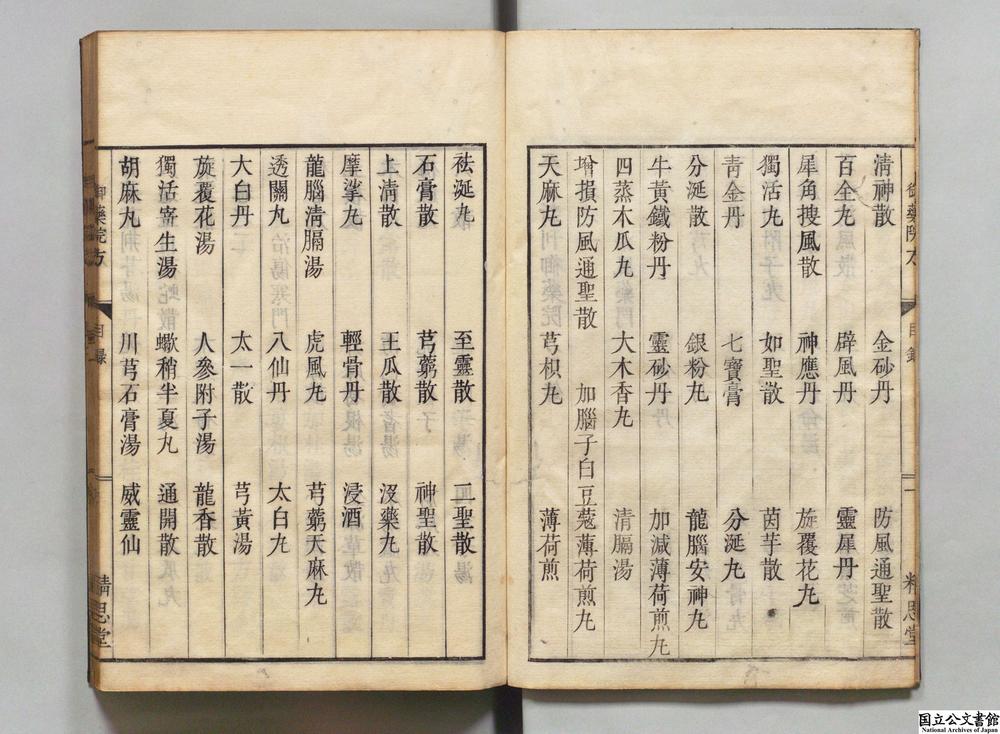 清神散　金砂丹　防風通聖散
百全丸　辟風丹　靈犀丹
犀角搜風散　神應丹　旋覆花丸
獨活丸　如聖散　茵芋散
靑金丹　七寶膏　分涎丸
分涎散　銀粉丸　龍腦安神丸
牛黃鐵粉丹　靈砂丹　加減薄荷煎丸
四蒸木瓜丸　大木香丸　清膈湯
增損防風通聖散　加腦子白豆蔻薄荷煎丸
天麻丸　芎枳丸　薄荷煎
祛涎丸　至靈散　二聖散
石膏散　芎藭散　神聖散
上清散　王瓜散　沒藥丸
摩挲丸　輕骨丹　浸酒
龍腦清膈湯　虎風丸　芎藭天麻丸
透關丸　八仙丹　太白丸
大白丹　太一散　芎黃湯
旋覆花湯　人參附子湯　龍香散
獨活寄生湯　蠍稍半夏丸　通開散
胡麻丸　川芎石膏湯　威靈仙
御藥院方　目錄　一　精思堂
国立公文書館
National Archives of Japan